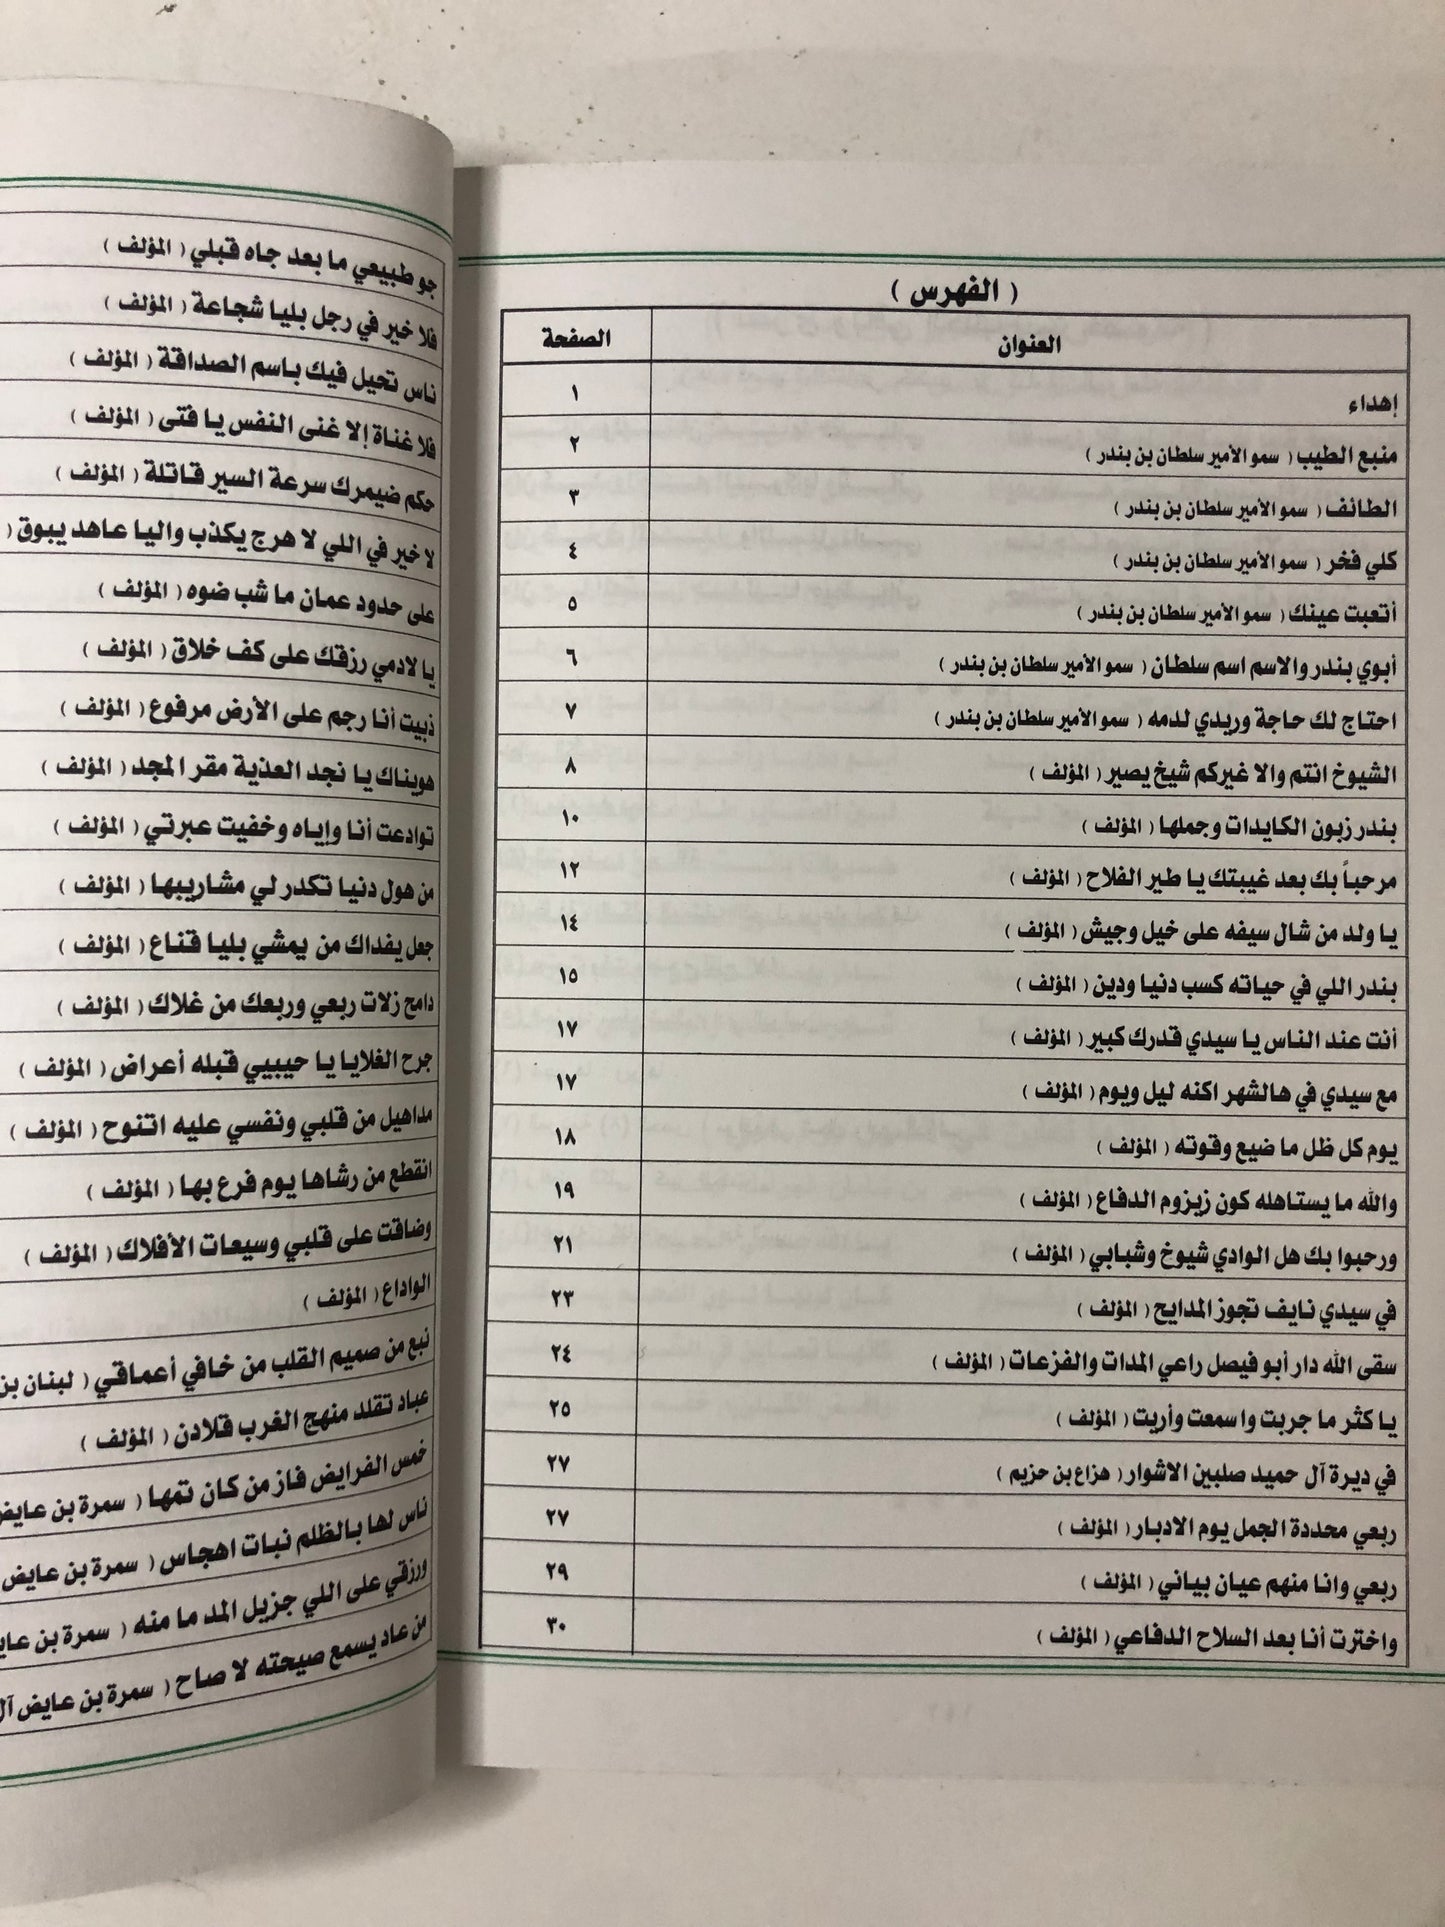 ( الفهرس )
العنوان الصفحة
إهداء ١
منبع الطيب ( سمو الأمير سلطان بن بندر ) ٢
الطائف ( سمو الأمير سلطان بن بندر ) ٣
كلي فخر ( سمو الأمير سلطان بن بندر ) ٤
أتعبت عينك ( سمو الأمير سلطان بن بندر ) ٥
أبوي بندر والاسم اسم سلطان ( سمو الأمير سلطان بن بندر ) ٦
احتاج لك حاجة وريدي لدمه ( سمو الأمير سلطان بن بندر ) ٧
الشيوخ انتم والا غيركم شيخ يصير ( المؤلف ) ٨
بندر زبون الكايدات وجملها ( المؤلف ) ١٠
مرحباً بك بعد غيبتك يا طير الفلاح ( المؤلف ) ١٢
يا ولد من شال سيفه على خيل وجيش ( المؤلف ) ١٤
بندر اللي في حياته كسب دنيا ودين ( المؤلف ) ١٥
أنت عند الناس يا سيدي قدرك كبير ( المؤلف ) ١٧
مع سيدي في هالشهر اكنه ليل ويوم ( المؤلف ) ١٧
يوم كل ظل ما ضيع وقوته ( المؤلف ) ١٨
والله ما يستاهله كون زيزوم الدفاع ( المؤلف ) ١٩
ورحبوا بك هل الوادي شيوخ وشبابي ( المؤلف ) ٢١
في سيدي نايف تجوز المدايح ( المؤلف ) ٢٣
سقى الله دار أبو فيصل راعي المدات والفزعات ( المؤلف ) ٢٤
يا كثر ما جربت واسمعت وأريت ( المؤلف ) ٢٥
في ديرة آل حميد صلبين الاشوار ( هزاع بن حزيم ) ٢٧
ربعي محددة الجمل يوم الادبار ( المؤلف ) ٢٧
ربعي وانا منهم عيان بياني ( المؤلف ) ٢٩
واخترت أنا بعد السلاح الدفاعي ( المؤلف ) ٣٠
جو طبيعي ما بعد جاه قبلي ( المؤلف )
فلا خير في رجل بليا شجاعة ( المؤلف )
ناس تحيل فيك باسم الصداقة ( المؤلف )
فلا غناة إلا غنى النفس يا فتى ( المؤلف )
حكم ضيمرك سرعة السير قاتلة ( المؤلف )
لا خير في اللي لا هرج يكذب واليا عاهد يبوق (
على حدود عمان ما شب ضوه ( المؤلف )
يا لادمي رزقك على كف خلاق ( المؤلف )
ذبيت أنا رجم على الأرض مرفوع ( المؤلف )
هويناك يا نجد العذية مقر المجد ( المؤلف )
توادعت أنا وإياه وخفيت عبرتي ( المؤلف )
من هول دنيا تكدر لي مشاريبها ( المؤلف )
جعل يفداك من يمشي بليا قناع ( المؤلف )
دامح زلات ربعي وربعك من غلاك ( المؤلف )
جرح الغلايا يا حبيبي قبله أعراض ( المؤلف )
مداهيل من قلبي ونفسي عليه اتنوح ( المؤلف )
انقطع من رشاها يوم فرع بها ( المؤلف )
وضاقت على قلبي وسيعات الأفلاك ( المؤلف )
الواداع ( المؤلف )
نبع من صميم القلب من خافي أعماقي ( لبنان بن
عباد تقلد منهج الغرب قلادن ( المؤلف )
خمس الفرايض فاز من كان تمها ( سمرة بن عايض
ناس لها بالظلم نبات اهجاس ( سمرة بن عايض
ورزقي على اللي جزيل المد ما منه ( سمرة بن
من عاد يسمع صيحته لا صاح ( سمرة بن عايض